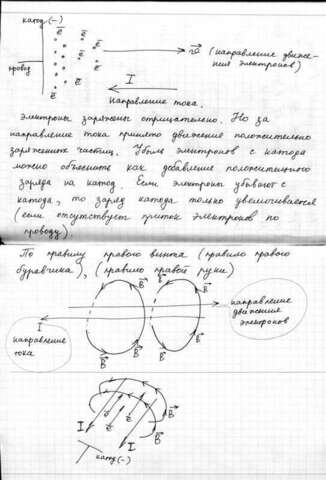 катод (-)
провод
e̅ e̅ e̅ e̅ e̅
v⃗ (направление движе-
ния электронов)
I
Направление тока.
Электроны заряжены отрицательно. Но за
направление тока принято движение положительно
заряженных частиц. Убыль электронов с катода
можно объяснить как добавление положительного
заряда на катод. Если электроны убывают с
катода, то заряд катода только увеличивается
(если отсутствует приток электронов по
проводу).
По правилу правого винта (правило правого
буравчика), (правило правой руки)
B⃗ B⃗ B⃗
направление
движения
электронов
I
направление
тока
B⃗ B⃗ B⃗ B⃗
e̅ e̅ e̅
B⃗
I I B⃗
катод (-)